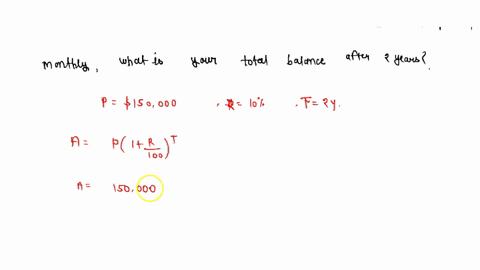 monthly, what is your total balance after 2 years?
P = $150,000 , R = 10% , T = 2y.
A = P(1 + R/100)^T
A = 150,000